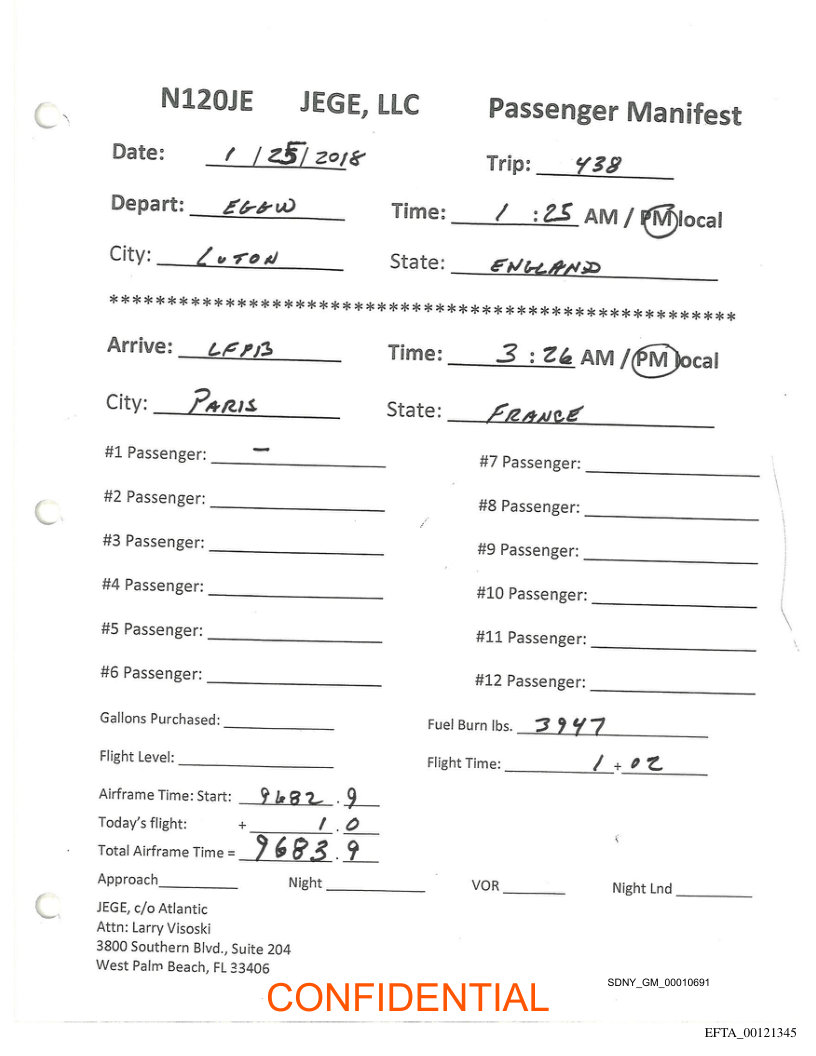 N120JE JEGE, LLC Passenger Manifest
Date: 1 / 25 / 2018 Trip: 438
Depart: EGGW Time: 1 : 25 AM / PM local
City: LUTON State: ENGLAND
******************************************************
Arrive: LFPB Time: 3 : 26 AM / PM local
City: PARIS State: FRANCE
#1 Passenger: - #7 Passenger:
#2 Passenger: #8 Passenger:
#3 Passenger: #9 Passenger:
#4 Passenger: #10 Passenger:
#5 Passenger: #11 Passenger:
#6 Passenger: #12 Passenger:
Gallons Purchased: Fuel Burn lbs. 3947
Flight Level: Flight Time: 1 + 02
Airframe Time: Start: 9682 . 9
Today's flight: + 1 . 0
Total Airframe Time = 9683 . 9
Approach Night VOR Night Lnd
JEGE, c/o Atlantic
Attn: Larry Visoski
3800 Southern Blvd., Suite 204
West Palm Beach, FL 33406
SDNY_GM_00010691
CONFIDENTIAL
EFTA_00121345